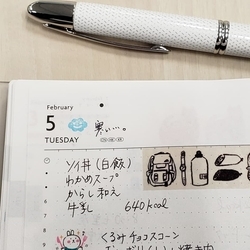 February
5
TUESDAY
寒い…。
ツナ丼(白飯)
わかめスープ
からし和え
牛乳 640kcal
くるみチョコスコーン